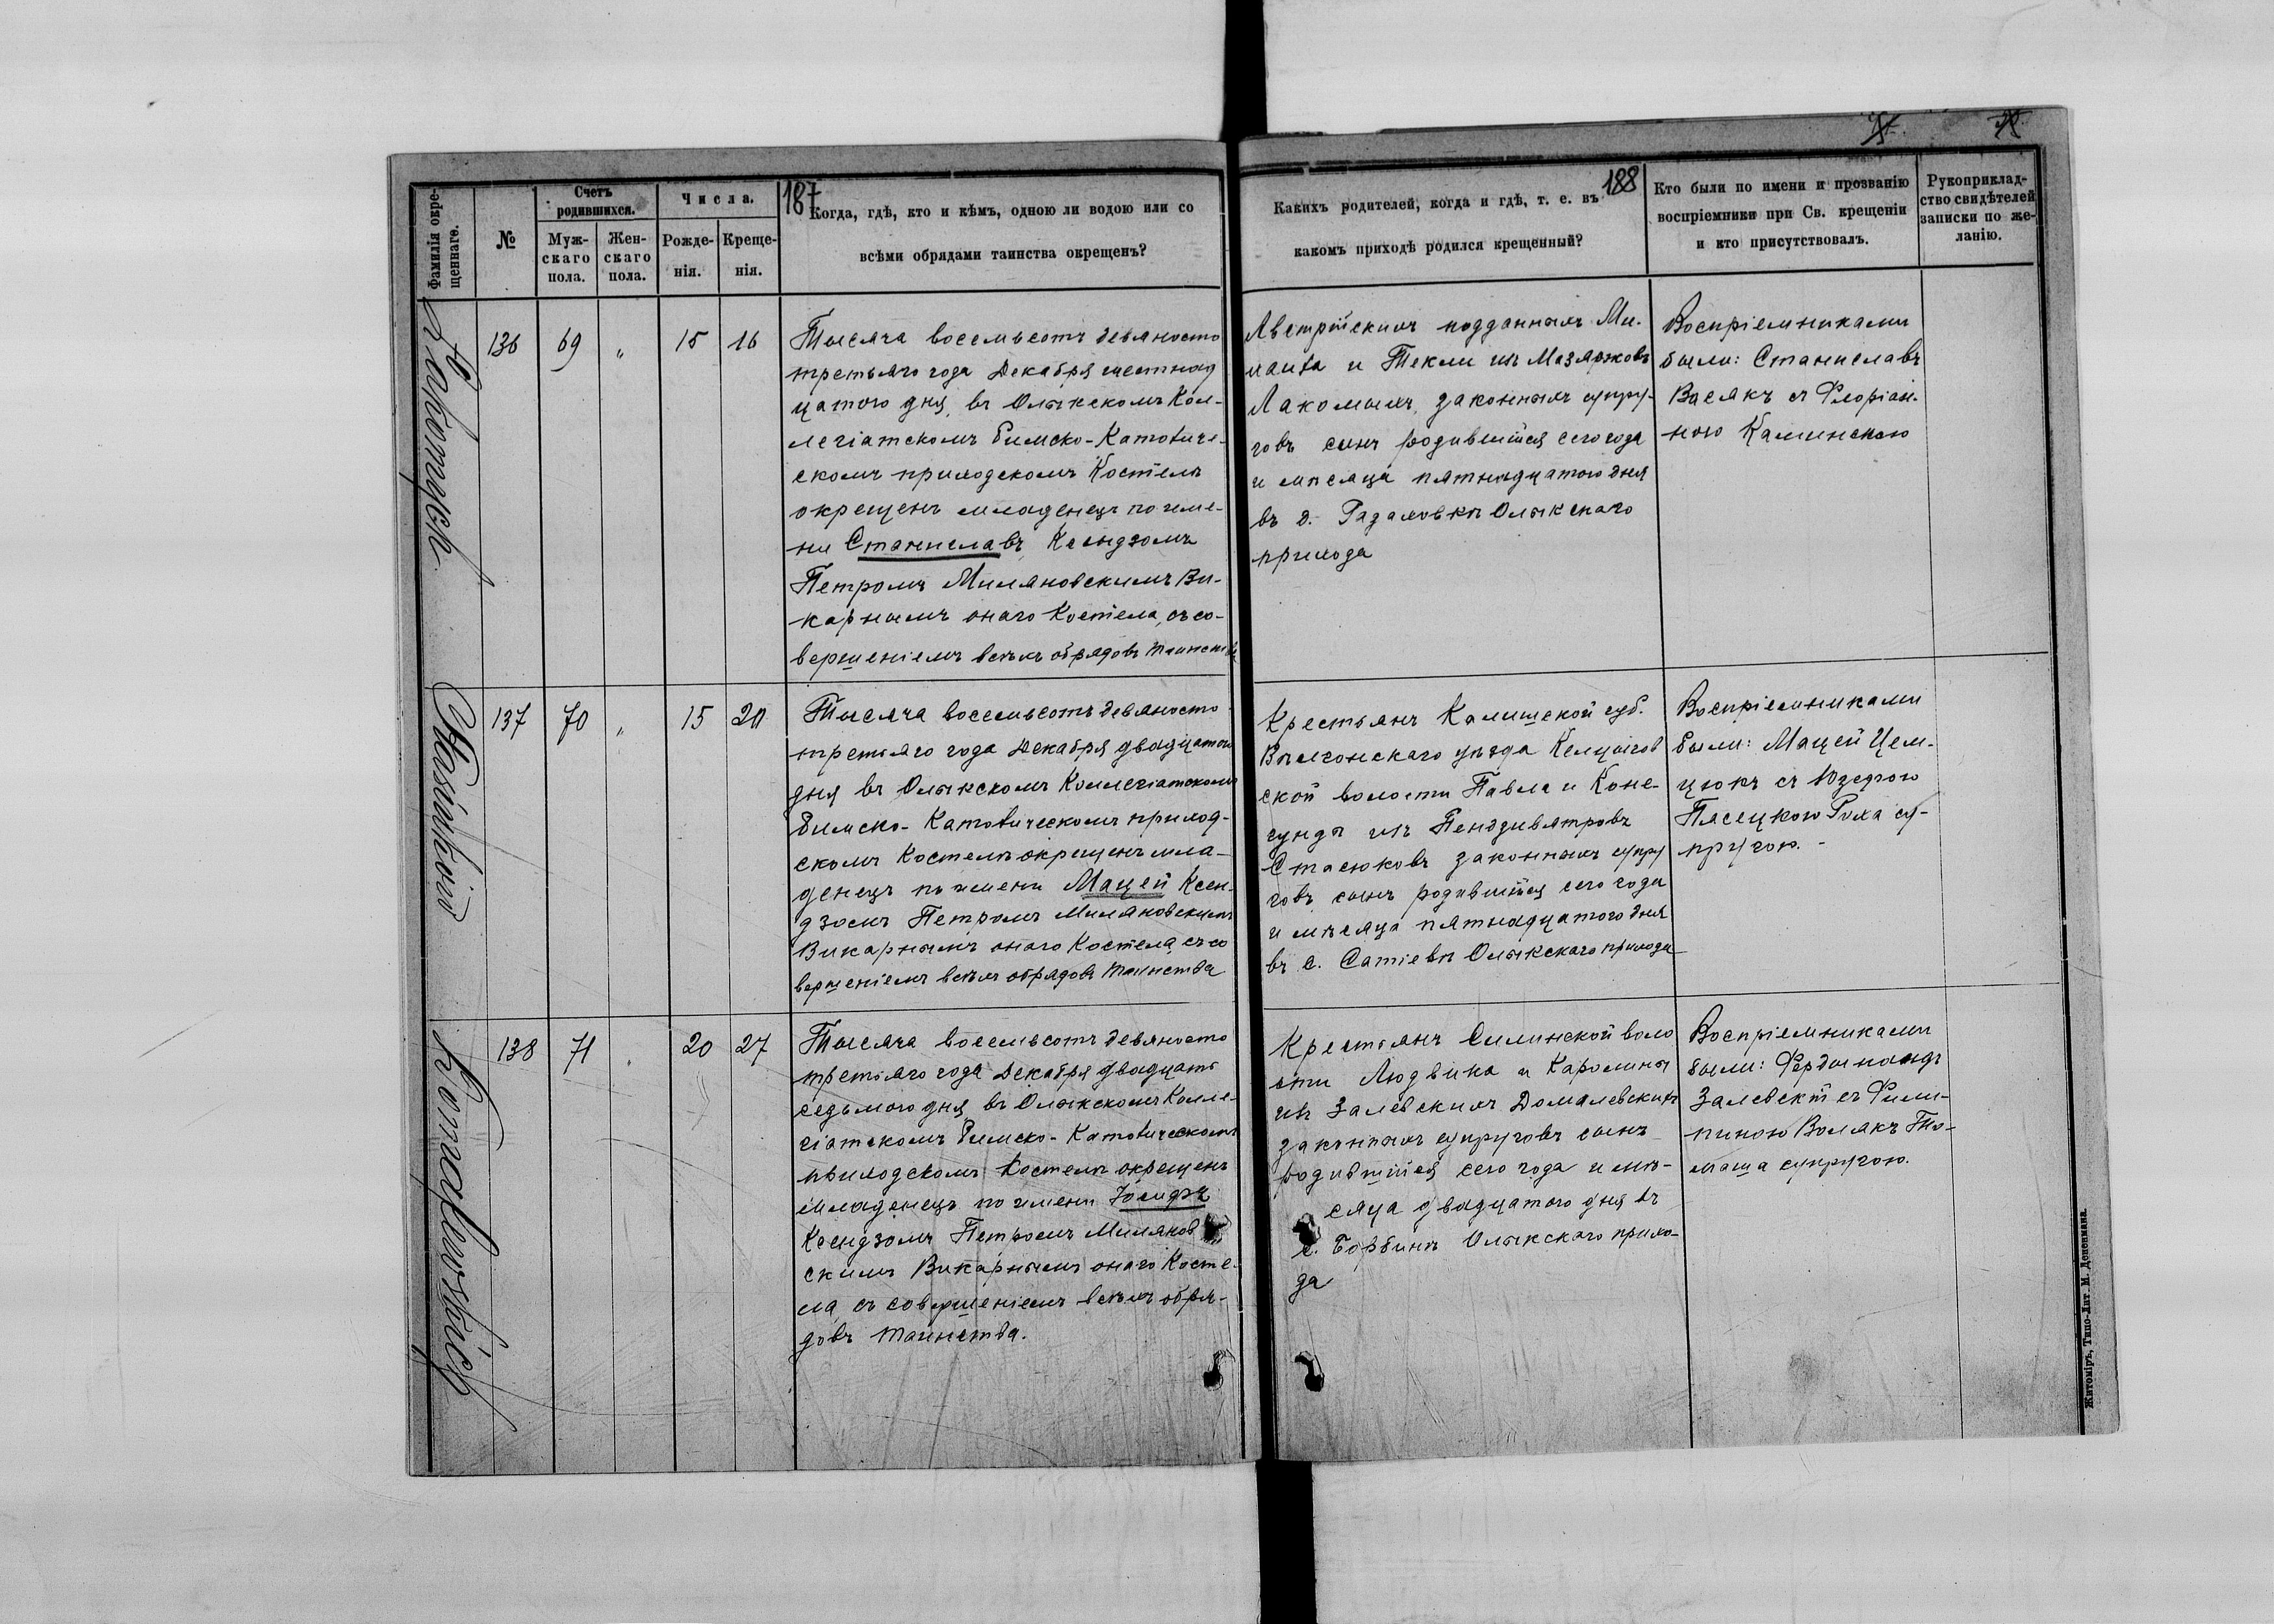 187
188
Фамилія окре-
щеннаго.
№
Счетъ
родившихся.
Муж-
скаго
пола.
Жен-
скаго
пола.
Числа.
Рожде-
нія.
Креще-
нія.
Когда, гдѣ, кто и кѣмъ, одною ли водою или со
всѣми обрядами таинства окрещенъ?
Какихъ родителей, когда и гдѣ, т. е. въ
какомъ приходѣ родился крещенный?
Кто были по имени и прозванію
воспріемники при Св. крещеніи
и кто присутствовалъ.
Рукоприклад-
ство свидѣтелей
записки по же-
ланію.
136 69 " 15 16
Тысяча восемьсотъ девяносто
третьяго года Декабря шестнад
цатого дня, въ Олыкскомъ Кол-
легіатскомъ Римско-Католиче-
скомъ приходскомъ Костелѣ
окрещенъ младенецъ по име-
ни Станиславъ Ксендзомъ
Петромъ Миляновскимъ Ви-
карнымъ онаго Костела, съ со-
вершеніемъ всѣхъ обрядовъ таинства
Австрійскихъ подданныхъ Ми-
хаила и Текли изъ Мазярковъ
Лакомыхъ, законныхъ супру-
говъ сынъ родившійся сего года
и мѣсяца пятнадцатого дня
въ д. Радаховкѣ Олыкскаго
прихода
Воспріемниками
были: Станиславъ
Васякъ съ Флоріан-
ною Каминскою
Stasiuków
137 70 " 15 20
Тысяча восемьсотъ девяносто
третьяго года Декабря двадцатого
дня въ Олыкскомъ Коллегіатскомъ
Римско-Католическомъ приход-
скомъ Костелѣ окрещенъ мла-
денецъ по имени Мацей Ксен-
дзомъ Петромъ Миляновскимъ
Викарнымъ онаго Костела, съ со
вершеніемъ всѣхъ обрядовъ таинства
Крестьянъ Калишской губ.
Вѣлюнскаго уѣзда
ской волости Павла и Коне-
гунды изъ
Стасюковъ законныхъ супру
говъ сынъ родившійся сего года
и мѣсяца пятнадцатого дня
въ с. Сатіевѣ Олыкскаго прихода
Воспріемниками
были: Мацей Цем-
цюкъ съ Юзефою
Пясецкого Роха су-
пругою. -
138 71 " 20 27
Тысяча восемьсотъ девяносто
третьяго года Декабря двадцать
седьмого дня, въ Олыкскомъ Колле-
гіатскомъ Римско-Католическомъ
приходскомъ Костелѣ окрещенъ
младенецъ по имени Іосифъ
Ксендзомъ Петромъ Милянов
скимъ Викарнымъ онаго Косте-
ла, съ совершеніемъ всѣхъ обря-
довъ таинства.
Крестьянъ Силинской воло
сти Людвика и Каролины
изъ Залевскихъ Домалевскихъ
законныхъ супруговъ сынъ
родившійся сего года и мѣ-
сяца двадцатого дня въ
с. Борбинѣ Олыкскаго прихо-
да
Воспріемниками
были: Фердинандъ
Залевскій съ Фили-
пиною Волякъ То-
маша супругою.
Житоміръ, Типо-Лит. М. Дененмана.